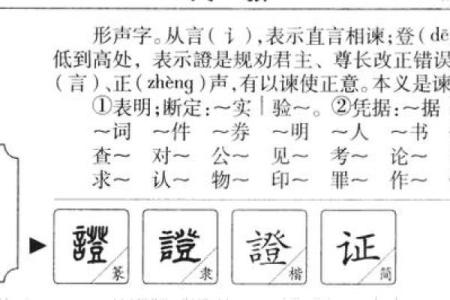 形声字。从言(讠),表示直言相谏;登(dē
低到高处，表示證是规劝君主、尊长改正错误
(言)、正(zhèng)声,有以谏使正意。本义是谏
①表明;断定:～实｜验～。②凭据:～据
～词 ～件 ～券 ～明 ～人 ～书
查～ 对～ 公～ 见～ 考～ 论～
求～ 认～ 物～ 印～ 罪～ 作～
▶ 證篆 證隶 證楷 证简